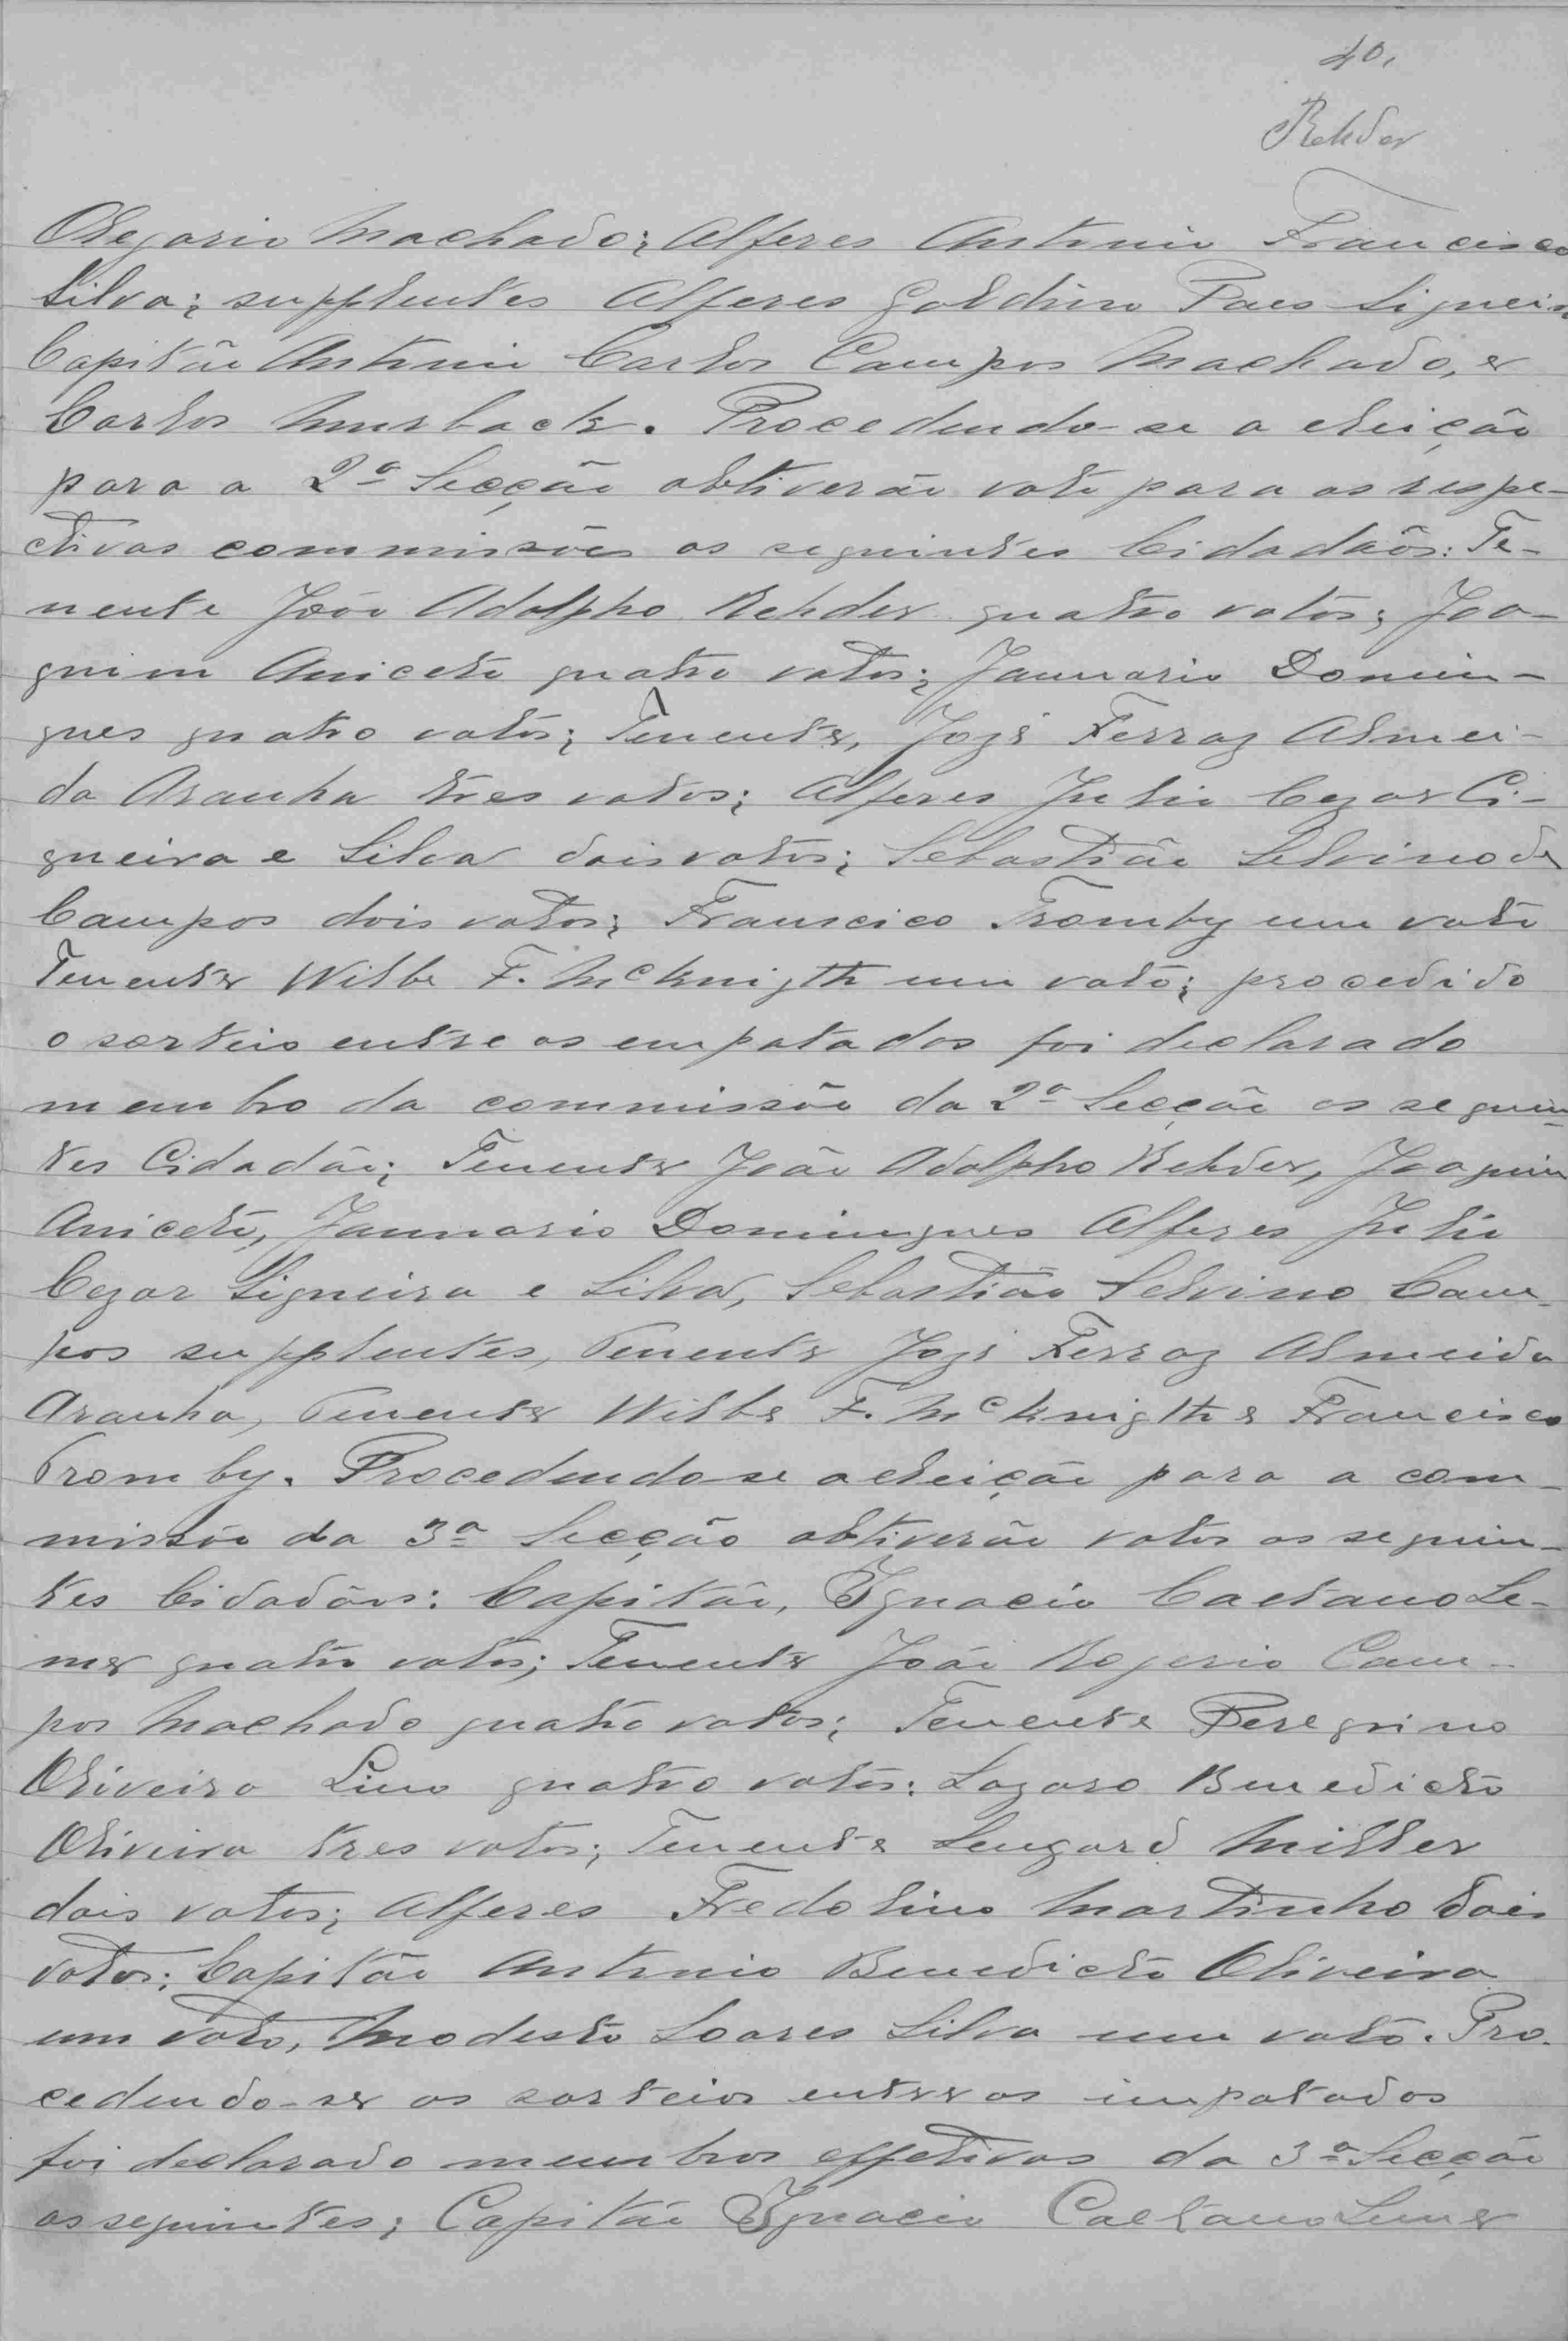 40.
Rehder
Olegario Machado; Alferes Antonio Francisco
Silva; supplentes Alferes Galdino Paes Siqueira
Capitão Antonio Carlos Campos Machado, e
Carlos Amsback. Procedendo-se a eleição
para a 2ª Secção obtiverão voto para as respe-
ctivas commissões os seguintes Cidadãos: Te-
nente João Adolpho Rehder quatro votos; Joa-
quim Aniceto quatro votos; Januario Domin-
gues quatro votos; Tenente, José Ferraz Almei-
da Aranha tres votos; Alferes Julio Cezar Ci-
queira e Silva dois votos; Sebastião Selvino de
Campos dois votos; Francisco Tromby um voto
Tenente Wilbe F. McKnigth um voto; procedido
o sorteio entre os empatados foi declarado
membro da commissão da 2ª Secção os seguin-
tes Cidadão; Tenente João Adolpho Rehder, Joaquim
Aniceto, Januario Domingues Alferes Julio
Cezar Siqueira e Silva, Sebastião Selvino Cam-
pos supplentes, Tenente José Ferraz Almeida
Aranha, Tenente Wilbe F. McKnigth e Francisco
Tromby. Procedendo-se a eleição para a com-
missão da 3ª Secção obtiverão votos os seguin-
tes Cidadãos: Capitão, Ignacio Caetano Le-
me quatro votos; Tenente João Rogerio Cam-
pos Machado quatro votos; Tenente Peregrino
Oliveira Lino quatro votos: Lazaro Benedicto
Oliveira tres votos; Tenente Lengard Miller
dois votos; Alferes Fredolino Martinho dois
votos; Capitão Antonio Benedicto Oliveira
um voto, Modesto Soares Silva um voto. Pro-
cedendo-se os sorteios entre os impatados
foi declarado membros effetivos da 3ª Secção
os seguintes; Capitão Ignacio Caetano Leme